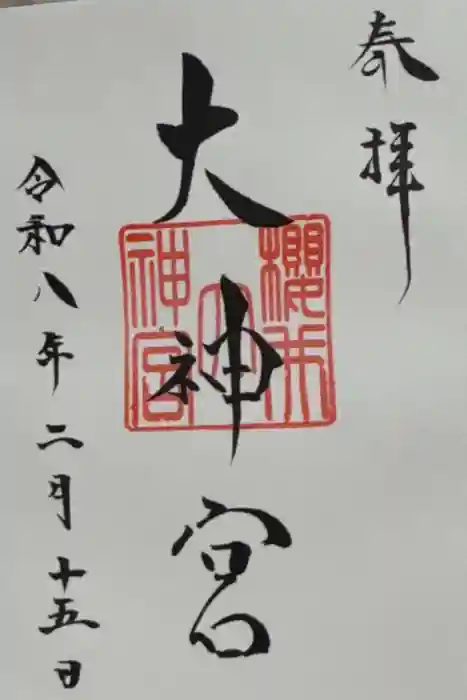 奉拝
大神宮
櫻
大
神宮
令和八年二月十五日